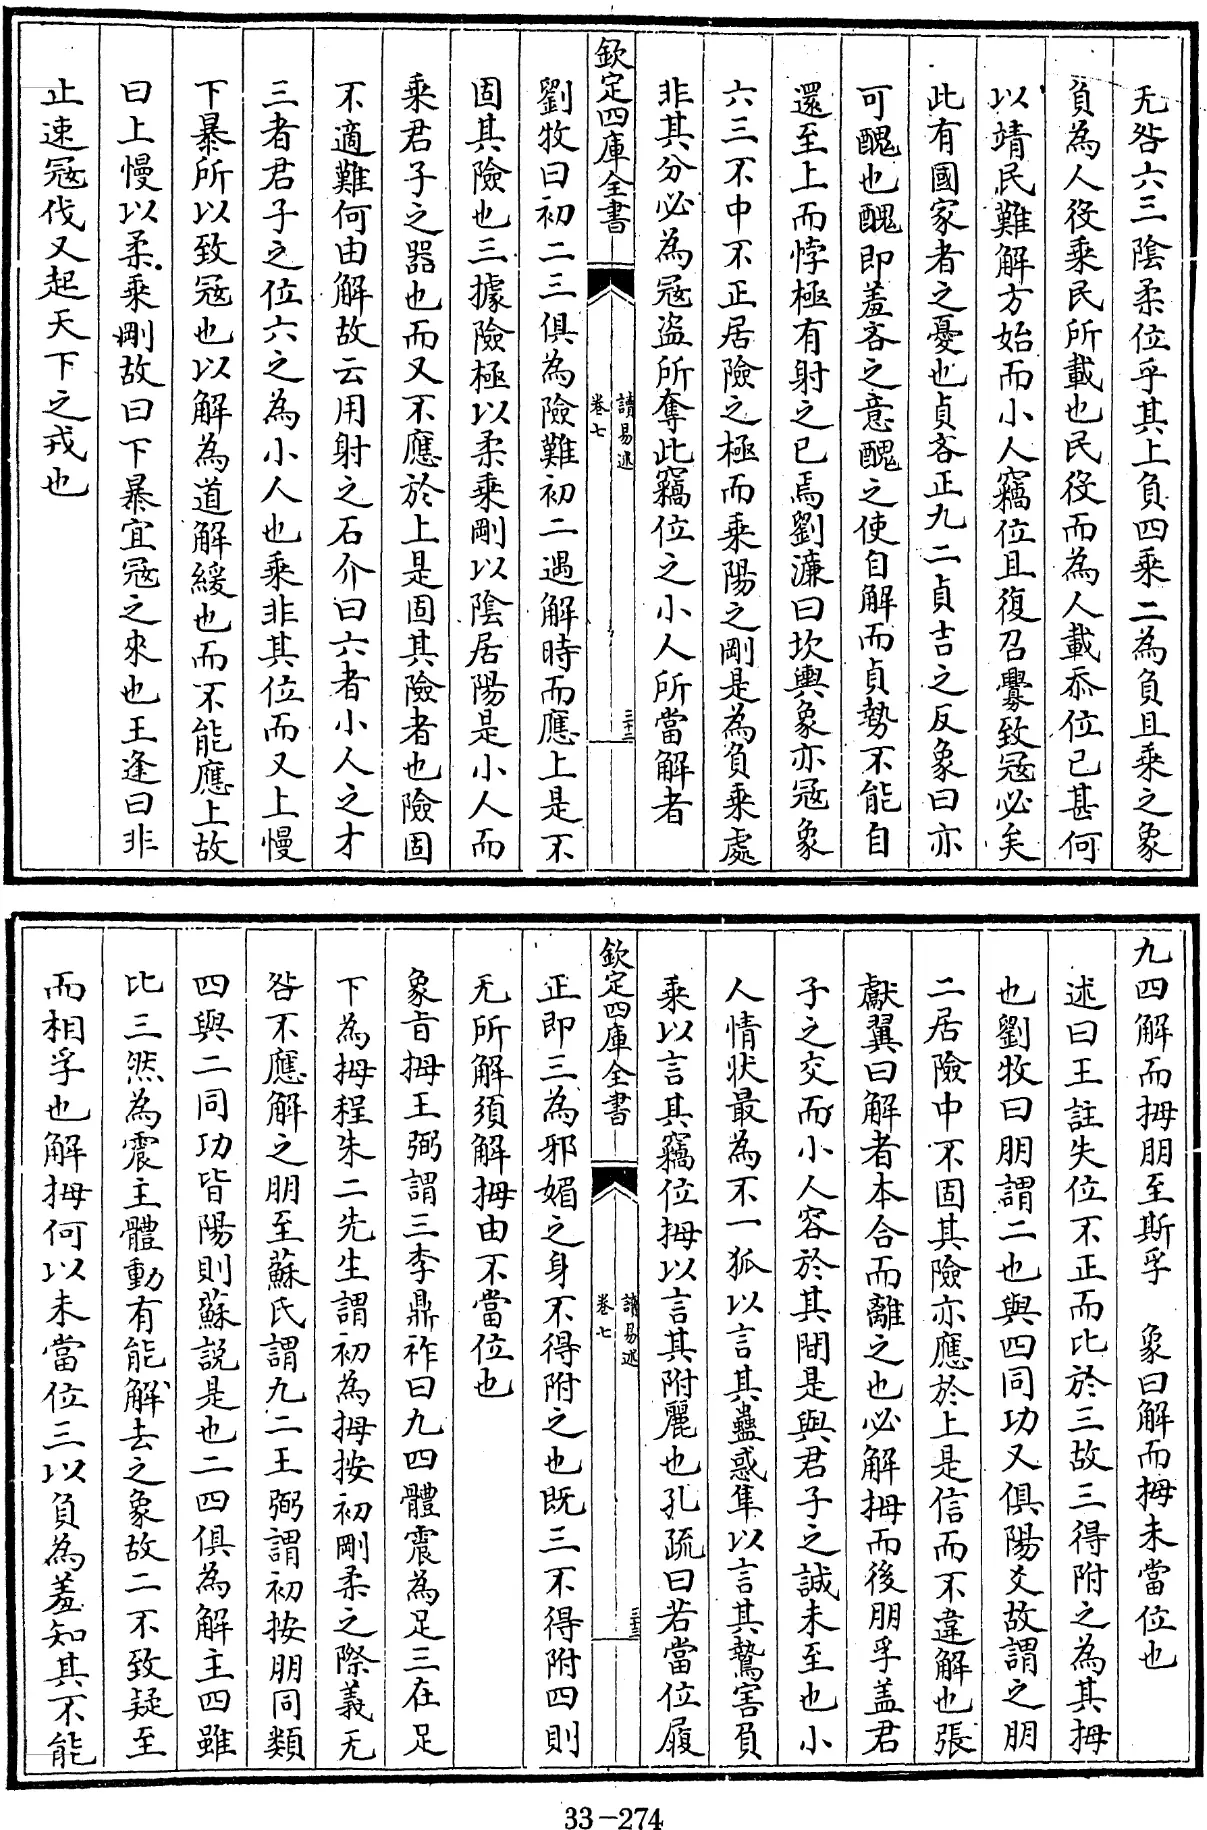 无咎六三陰柔位乎其上負四乘二為負且乘之象
負為人役乘民所載也民役而為人載忝位已甚何
以靖民難解方始而小人竊位且復召釁致冦必矣
此有國家者之憂也貞吝正九二貞吉之反象曰亦
可醜也醜即羞吝之意醜之使自解而貞勢不能自
還至上而悖極有射之已焉劉濂曰坎輿象亦冦象
六三不中不正居險之極而乘陽之剛是為負乘處
非其分必為冦盜所奪此竊位之小人所當解者
欽定四庫全書
讀易述
卷七
三十二
劉牧曰初二三俱為險難初二遇解時而應上是不
固其險也三據險極以柔乘剛以陰居陽是小人而
乘君子之器也而又不應於上是固其險者也險固
不適難何由解故云用射之石介曰六者小人之才
三者君子之位六之為小人也乘非其位而又上慢
下暴所以致冦也以解為道解緩也而不能應上故
曰上慢以柔乘剛故曰下暴宜冦之來也王逢曰非
止速冦伐又起天下之戎也
九四解而拇朋至斯孚 象曰解而拇未當位也
述曰王註失位不正而比於三故三得附之為其拇
也劉牧曰朋謂二也與四同功又俱陽爻故謂之朋
二居險中不固其險亦應於上是信而不違解也張
獻翼曰解者本合而離之也必解拇而後朋孚盖君
子之交而小人容於其間是與君子之誠未至也小
人情狀最為不一狐以言其蠱惑隼以言其鷙害負
乘以言其竊位拇以言其附麗也孔疏曰若當位履
欽定四庫全書
讀易述
卷七
三十三
正即三為邪媚之身不得附之也既三不得附四則
无所解須解拇由不當位也
象旨拇王弼謂三李鼎祚曰九四體震為足三在足
下為拇程朱二先生謂初為拇按初剛柔之際義无
咎不應解之朋至蘇氏謂九二王弼謂初按朋同類
四與二同功皆陽則蘇說是也二四俱為解主四雖
比三然為震主體動有能解去之象故二不致疑至
而相孚也解拇何以未當位三以負為羞知其不能
33-274